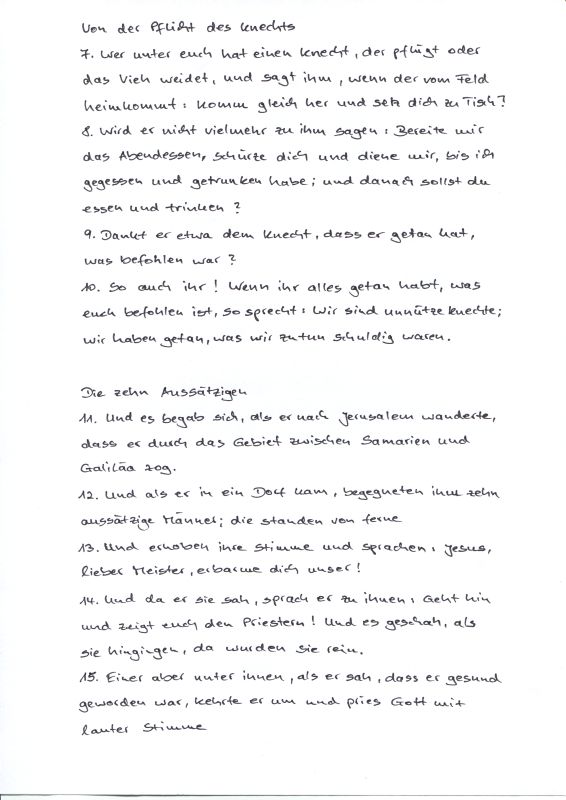 Von der Pflicht des Knechts
7. Wer unter euch hat einen Knecht, der pflügt oder
das Vieh weidet, und sagt ihm, wenn der vom Feld
heimkommt: Komm gleich her und setz dich zu Tisch?
8. Wird er nicht vielmehr zu ihm sagen: Bereite mir
das Abendessen, schürze dich und diene mir, bis ich
gegessen und getrunken habe; und danach sollst du
essen und trinken?
9. Dankt er etwa dem Knecht, dass er getan hat,
was befohlen war?
10. So auch ihr! Wenn ihr alles getan habt, was
euch befohlen ist, so sprecht: Wir sind unnütze Knechte;
wir haben getan, was wir zu tun schuldig waren.
Die zehn Aussätzigen
11. Und es begab sich, als er nach Jerusalem wanderte,
dass er durch das Gebiet zwischen Samarien und
Galiläa zog.
12. Und als er in ein Dorf kam, begegneten ihm zehn
aussätzige Männer; die standen von ferne
13. Und erhoben ihre Stimme und sprachen: Jesus,
lieber Meister, erbarme dich unser!
14. Und da er sie sah, sprach er zu ihnen: Geht hin
und zeigt euch den Priestern! Und es geschah, als
sie hingingen, da wurden sie rein.
15. Einer aber unter ihnen, als er sah, dass er gesund
geworden war, kehrte er um und pries Gott mit
lauter Stimme